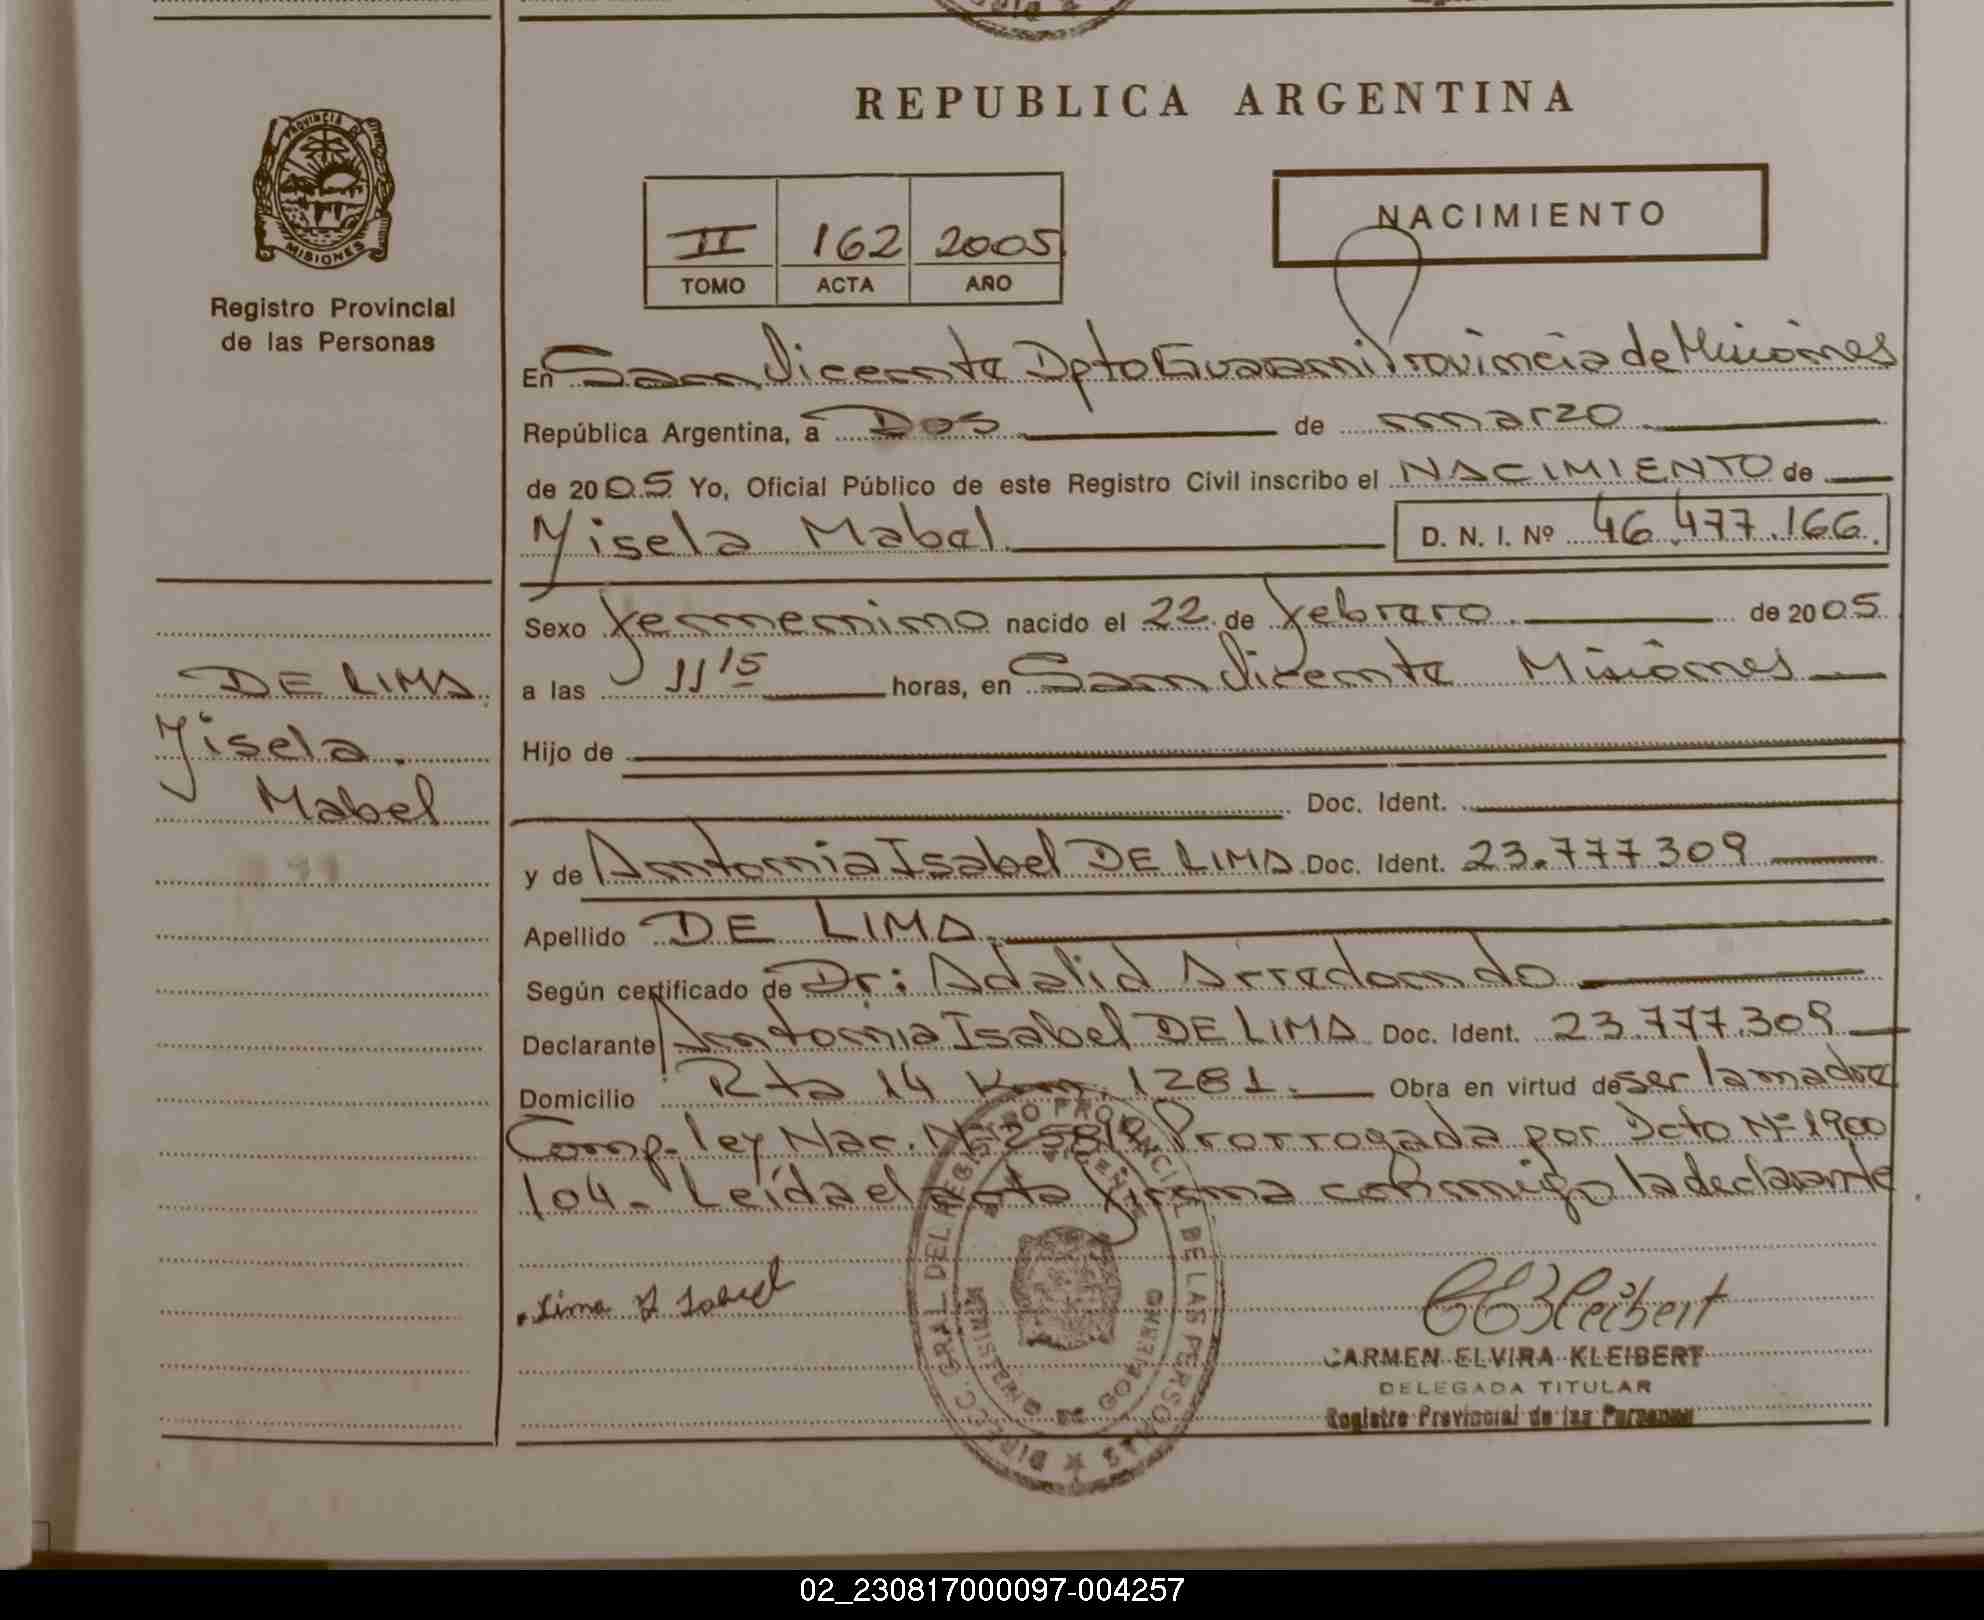 REPUBLICA ARGENTINA
PROVINCIA DE
MISIONES
Registro Provincial
de las Personas
II 162 2005
TOMO ACTA AÑO
NACIMIENTO
En San Vicente Dpto Guarani Provincia de Misiones
República Argentina, a Dos de marzo
de 2005 Yo, Oficial Público de este Registro Civil inscribo el NACIMIENTO de
Yisela Mabel D. N. I. Nº 46.477.166.
Sexo femenino nacido el 22 de febrero de 2005
a las 11 15 horas, en San Vicente Misiones
DE LIMA
Yisela
Mabel
Hijo de
Doc. Ident.
y de Antonia Isabel DE LIMA Doc. Ident. 23.777309
Apellido DE LIMA
Según certificado de Dr: Adalid Arredondo
Declarante Antonia Isabel DE LIMA Doc. Ident. 23.777.309
Domicilio Rta 14 Km. 1281. Obra en virtud de ser la madre
Comp. ley Nac. Nº 25819 Prorrogada por Dcto Nº 1900
104- Leída el acta firma conmigo la declarante
Lima A Isabel
CEKleibert
CARMEN ELVIRA KLEIBERT
DELEGADA TITULAR
Registro Provincial de las Personas
DIRECC. GRAL. DEL REGISTRO PROVINCIAL DE LAS PERSONAS
MINISTERIO DE GOBIERNO
02_230817000097-004257